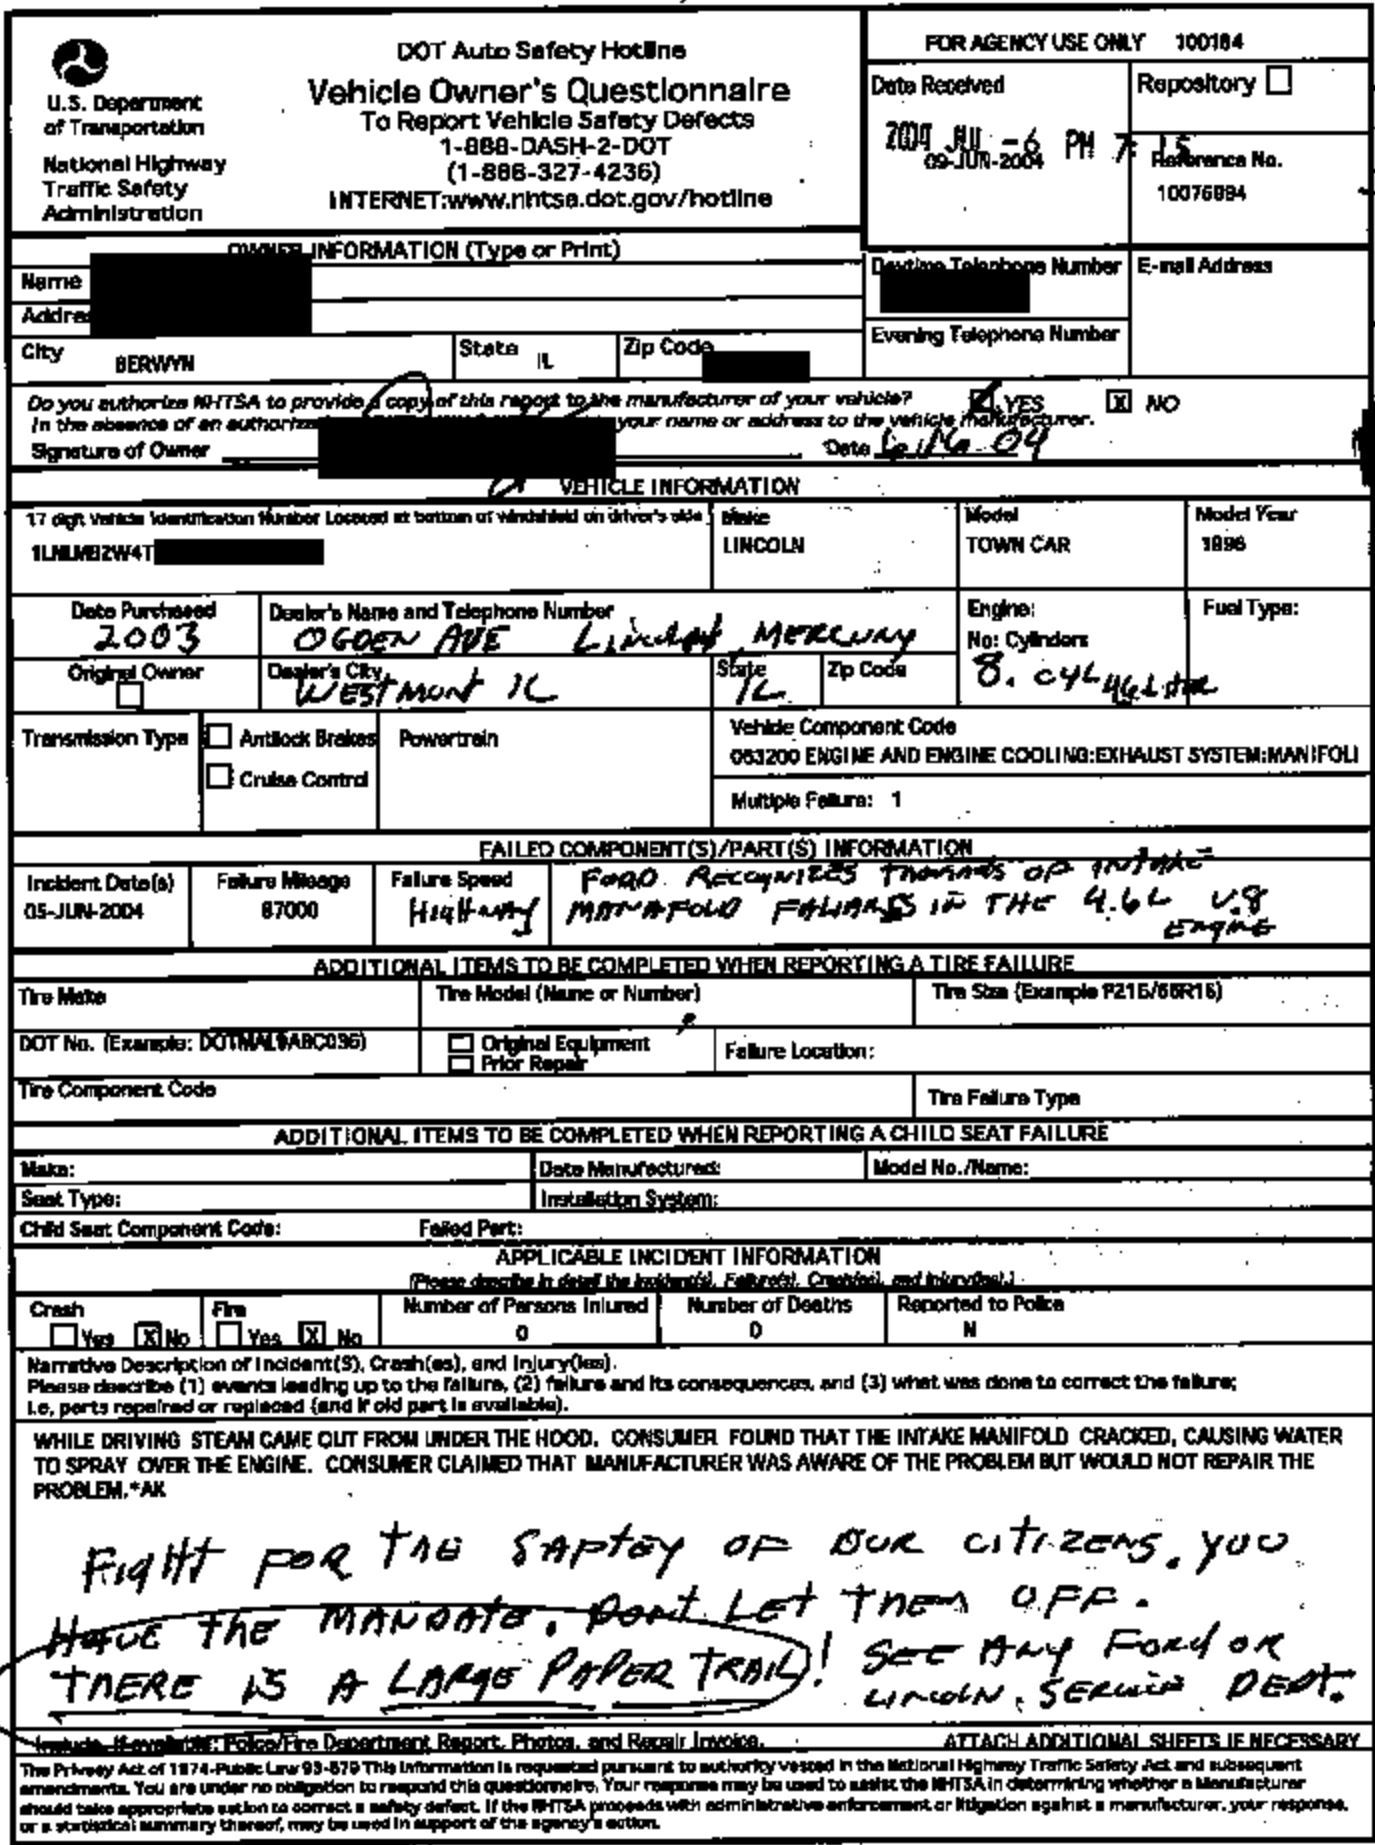 DOT Auto Safety Hotline
Vehicle Owner's Questionnaire
To Report Vehicle Safety Defects
1-888-DASH-2-DOT
(1-888-327-4236)
INTERNET:www.nhtsa.dot.gov/hotline
U.S. Department
of Transportation
National Highway
Traffic Safety
Administration
FOR AGENCY USE ONLY 100184
Date Received
2004 JUL -6 PM 7: 15
09-JUN-2004
Repository
Reference No.
10076894
OWNER INFORMATION (Type or Print)
Name
Daytime Telephone Number
E-mail Address
Evening Telephone Number
City BERWYN
State IL
Zip Code
Do you authorize NHTSA to provide a copy of this report to the manufacturer of your vehicle? YES X NO
In the absence of an your name or address to the vehicle manufacturer.
Signature of Owner
Date
VEHICLE INFORMATION
17 digit Vehicle Identification Number Located at bottom of windshield on driver's side
Make
LINCOLN
Model
TOWN CAR
Model Year
1996
Date Purchased
2003
Dealer's Name and Telephone Number
OGDEN AVE Lincoln, MERCURY
Engine:
No: Cylinders
8. CYL
Fuel Type:
Original Owner
Dealer's City
WESTMONT IL
State
IL
Zip Code
Transmission Type
Antilock Brakes
Cruise Control
Powertrain
Vehicle Component Code
063200 ENGINE AND ENGINE COOLING:EXHAUST SYSTEM:MANIFOLI
Multiple Failure: 1
FAILED COMPONENT(S)/PART(S) INFORMATION
Incident Date(s)
05-JUN-2004
Failure Mileage
87000
Failure Speed
HigHway
FORD RECOGNIZES THOUSANDS OF INTAKE
MANAFOLD FALIARES IN THE 4.6L V.8
ENGINE
ADDITIONAL ITEMS TO BE COMPLETED WHEN REPORTING A TIRE FAILURE
Tire Make
Tire Model (Name or Number)
Tire Size (Example P215/65R15)
DOT No. (Example: DOTMAL9ABC036)
Original Equipment
Prior Repair
Failure Location:
Tire Component Code
Tire Failure Type
ADDITIONAL ITEMS TO BE COMPLETED WHEN REPORTING A CHILD SEAT FAILURE
Make:
Date Manufactured:
Model No./Name:
Seat Type:
Installation System:
Child Seat Component Code:
Failed Part:
APPLICABLE INCIDENT INFORMATION
(Please describe in detail the incident(s), Failure(s), Crash(es), and injury(ies).)
Crash
Yes X No
Fire
Yes X No
Number of Persons Injured
0
Number of Deaths
0
Reported to Police
N
Narrative Description of Incident(S), Crash(es), and Injury(ies).
Please describe (1) events leading up to the failure, (2) failure and its consequences, and (3) what was done to correct the failure;
i.e, parts repaired or replaced (and if old part is available).
WHILE DRIVING STEAM CAME OUT FROM UNDER THE HOOD. CONSUMER FOUND THAT THE INTAKE MANIFOLD CRACKED, CAUSING WATER
TO SPRAY OVER THE ENGINE. CONSUMER CLAIMED THAT MANUFACTURER WAS AWARE OF THE PROBLEM BUT WOULD NOT REPAIR THE
PROBLEM.*AK
FIGHT FOR THE SAFTEY OF OUR CITIZENS. YOU
HAVE THE MANDATE. DON'T LET THEM OFF.
THERE IS A LARGE PAPER TRAIL! SEE ANY FORD OR
LINCOLN SERVICE DEPT.
Include, if available: Police/Fire Department Report, Photos, and Repair Invoice. ATTACH ADDITIONAL SHEETS IF NECESSARY
The Privacy Act of 1974-Public Law 93-579 This information is requested pursuant to authority vested in the National Highway Traffic Safety Act and subsequent
amendments. You are under no obligation to respond this questionnaire. Your response may be used to assist the NHTSA in determining whether a Manufacturer
should take appropriate action to correct a safety defect. If the NHTSA proceeds with administrative enforcement or litigation against a manufacturer, your response,
or a statistical summary thereof, may be used in support of the agency's action.